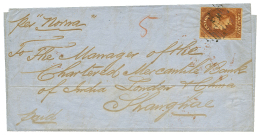 per "Norna"
5
To The Manager of the
Chartered Mercantile Bank
of India London & China
Shanghae